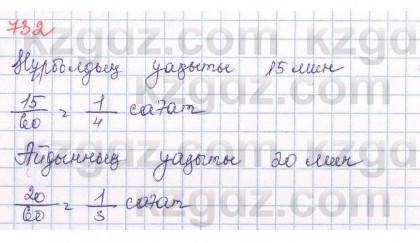 732
Нұрбылдың уақыты 15 мин
15/60 = 1/4 сағат
Айдынның уақыты 20 мин
20/60 = 1/3 сағат
kzgaz.com